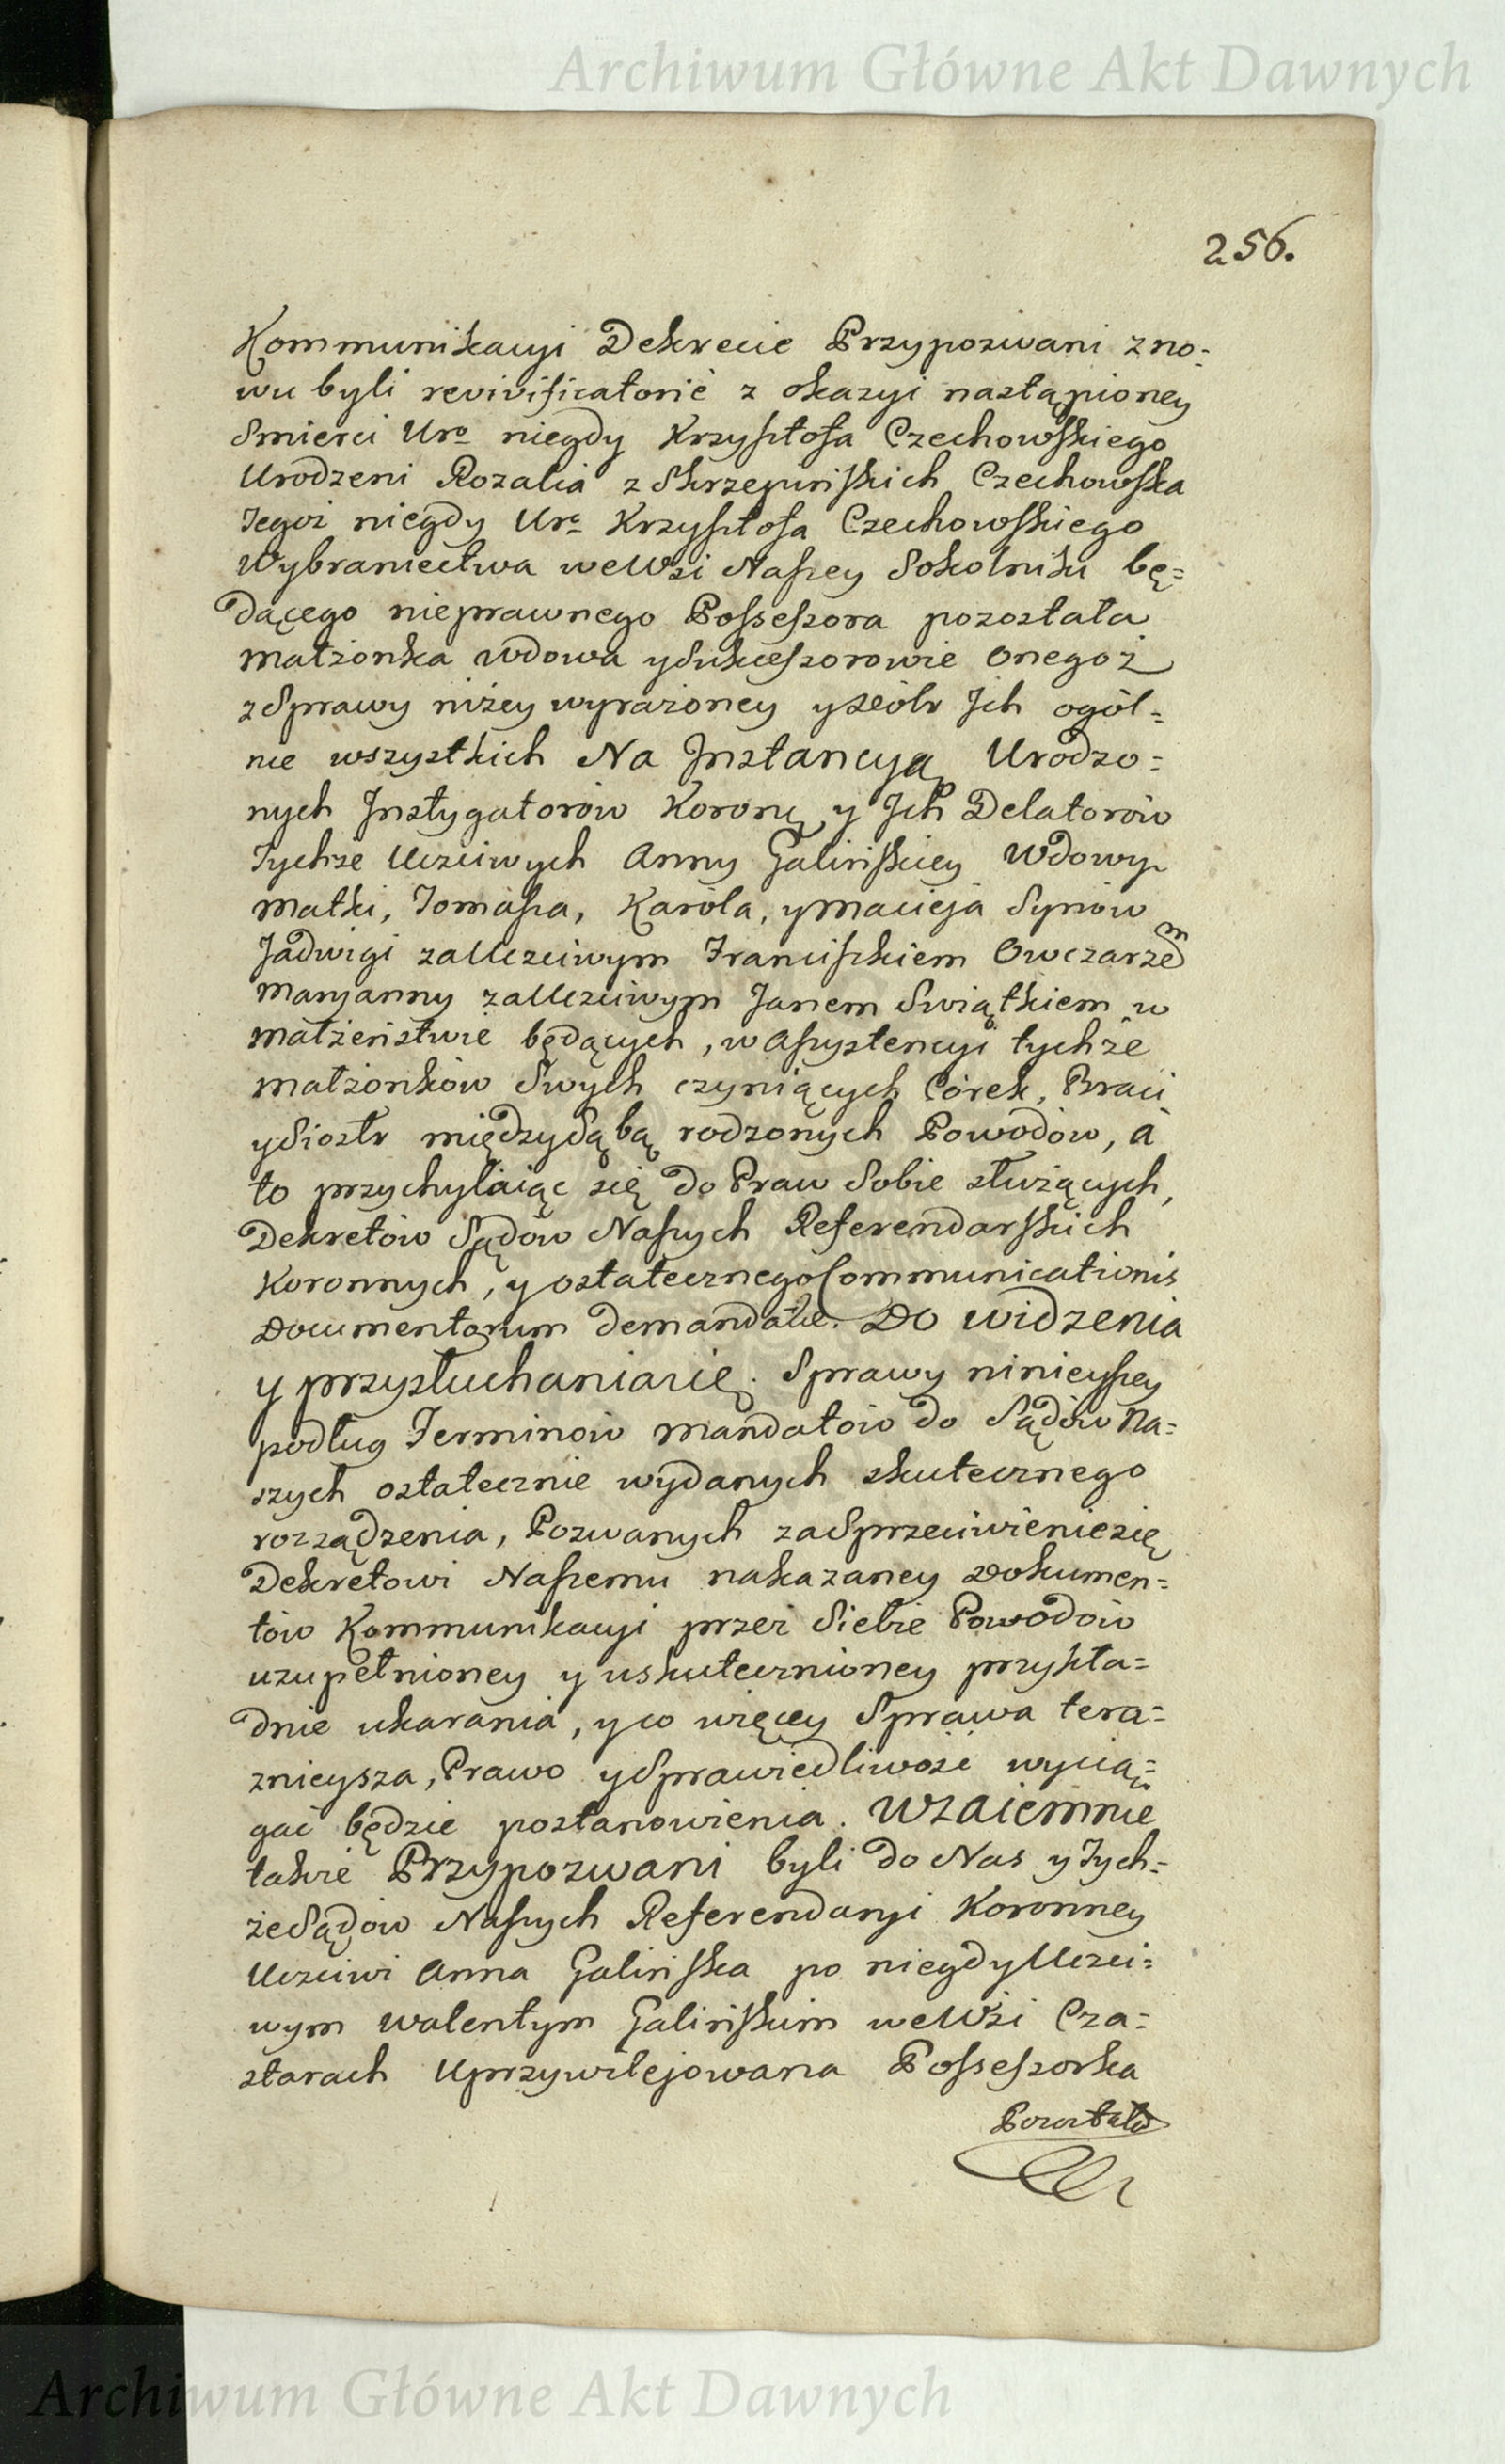 Archiwum Główne Akt Dawnych
256.
Kommunikacyi Dekrecie Przypozwani zno-
wu byli revivificatorié z okazyi nastąpioney
Smierci Uro niegdy Krzysztofa Czechowskiego
Urodzeni Rozalia z Skrzeyńskich Czechowska
Tegoż niegdy Uro Krzysztofa Czechowskiego
Wybraniectwa weWsi Naszey Sokolniku bę=
dącego nieprawnego Possessora pozostała
małżonka wdowa ySukcessorowie onegoż
zSprawy niżey wyrażoney ysiòłr Jch ogól=
nie wszystkich Na Jnstancyą Urodzo=
nych Jnstygatorów Korony y Jch Delatorów
Tychże Uczciwych Anny Galińskiey Wdowy
matki, Tomasza, Karóla, ymacieja Synów
Jadwigi zaUczciwym Franciszkiem Owczarzem
maryanny zaUczciwym Janem Swiątkiem w
małżeństwie będących, wassystencyi tychże
małżonków Swych czyniących Córek, Braci
ySiostr międzySąbą rodzonych Powodów, a
to przychylaiąc się do Praw Sobie służących,
Dekretów Sądów Naszych Referendarskich
Koronnych, y ostatecznego Communicationis
Documentorum demandatæ. Do widzenia
y przysłuchaniasię. Sprawy ninieyszey
podług Terminów mandatów do Sądów Na=
szych ostatecznie wydanych skutecznego
rozsądzenia, Pozwanych zaSprzeciwieniesię
Dekretowi Naszemu nakazaney Dokumen=
tów Kommunikacyi przez Siebie Powodów
uzupełnioney y uskutecznioney przykła=
dnie ukarania, yco więcey Sprawa tera=
znieysza, Prawo ySprawiedliwość wycią=
gać będzie postanowienia. Wzaiemnie
także Przypozwani byli do Nas yTych=
żeSądów Naszych Referendaryi Koronney
Uczciwi Anna Galińska po niegdyUczci=
wym Walentym Galińskim weWsi Cza=
starach Uprzywilejowana Possessorka
Pozostała
Archiwum Główne Akt Dawnych